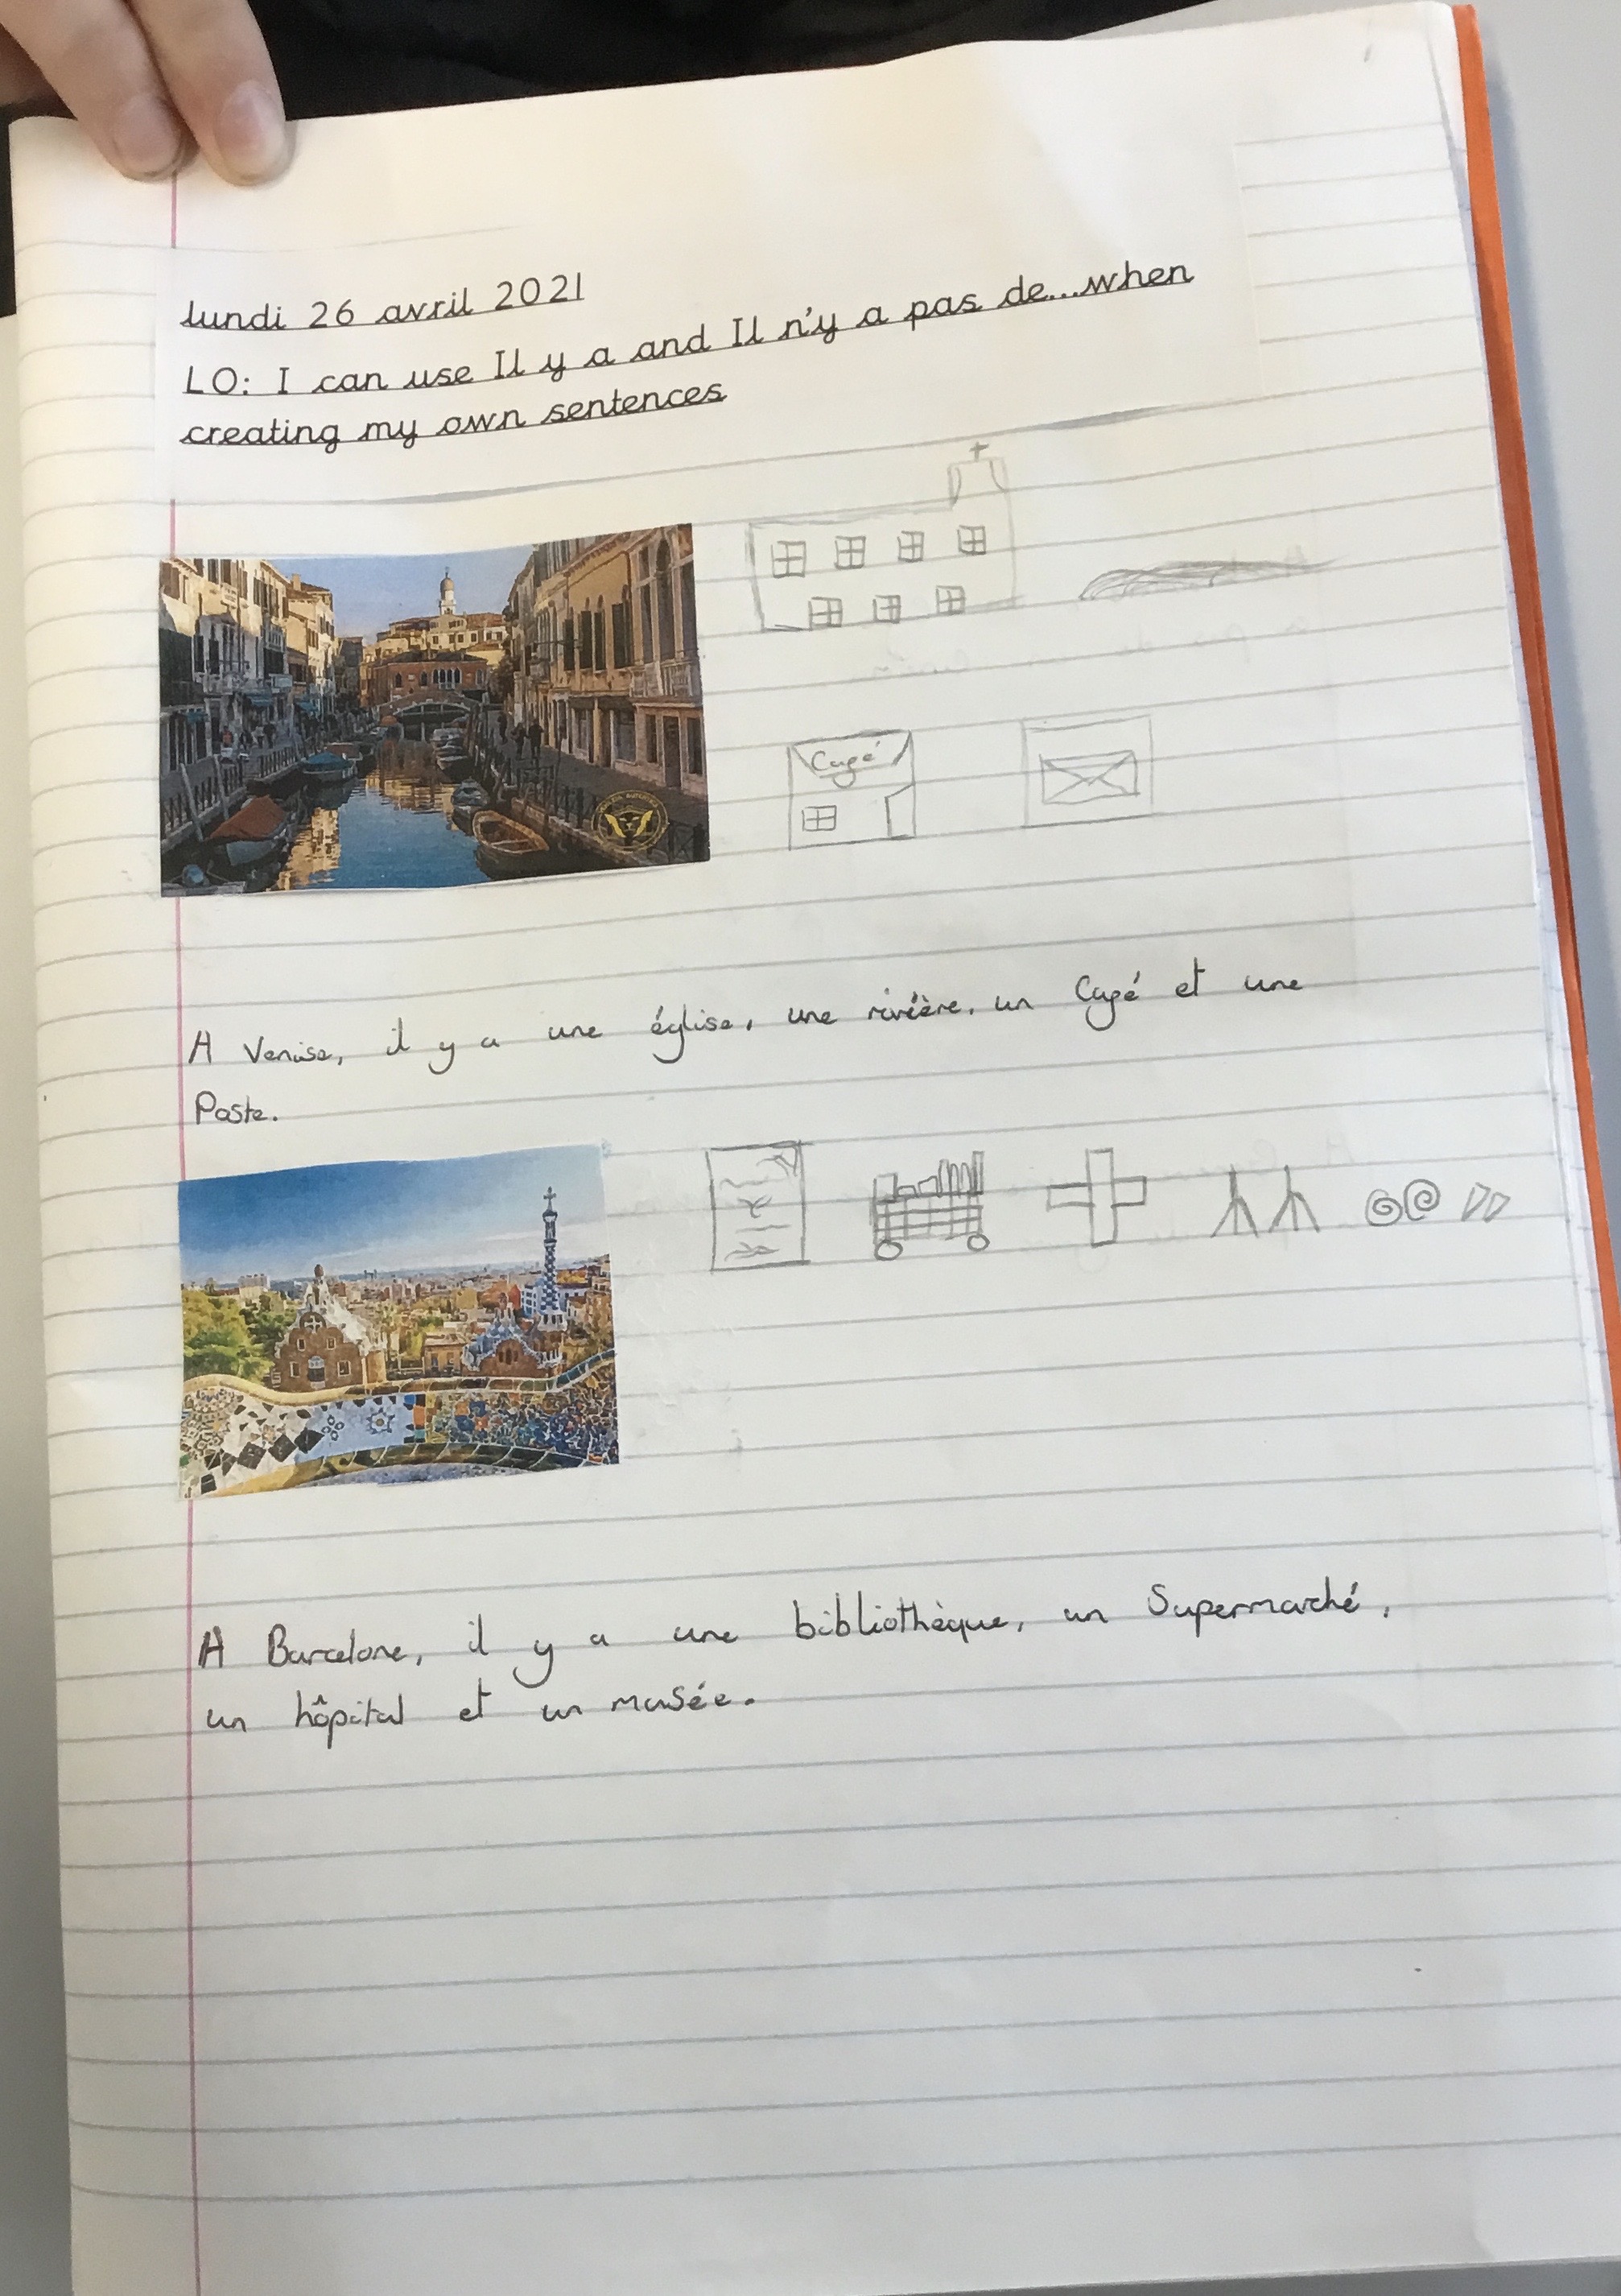 lundi 26 avril 2021
LO: I can use Il y a and Il n'y a pas de...when
creating my own sentences
Cagé
A Venise, il y a une église, une rivière, un Cagé et une
Poste.
A Barcelone, il y a une bibliothèque, un Supermarché,
un hôpital et un musée.